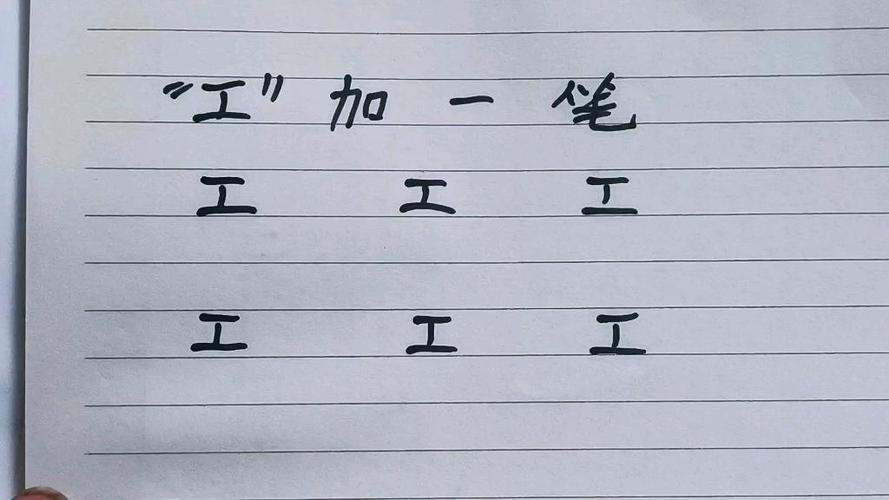 “工”加一笔
工 工 工
工 工 工